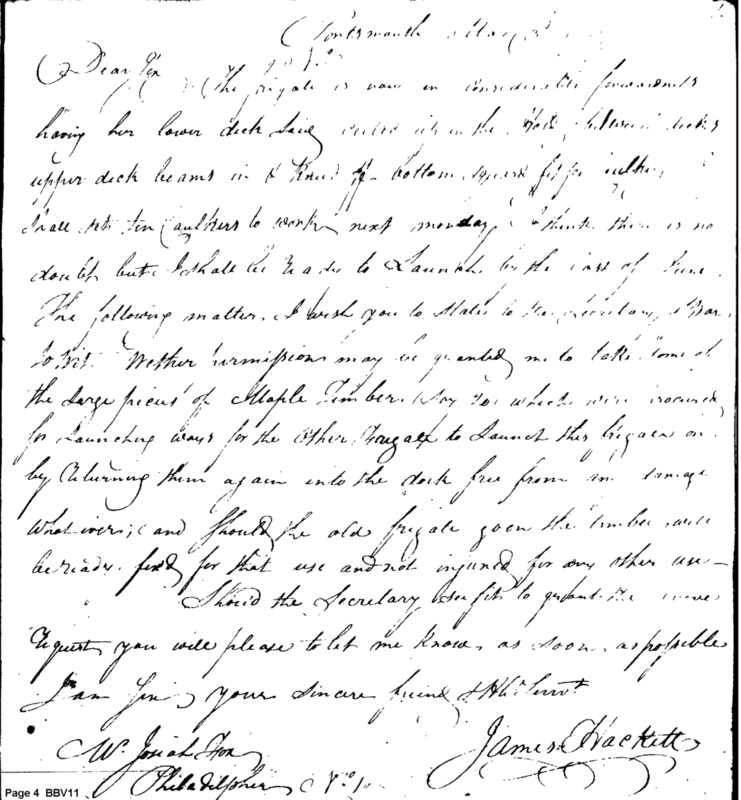 Portsmouth May
Dear Sir The frigate is now in considerable forwardness
having her lower deck Laid between decks
upper deck beams in & Kneed bottom fit for
Shall set ten Caulkers to work next monday. I think there is no
doubt but I shall be ready to Launch by the last of June.
The following matter. I wish you to state to the Secretary of War
to Wit. Wether permission may be granted me to take some of
the Large pieces of Maple Timber. Say 20 which were procured
for Launching ways for the Other Frigate to Launch this frigate on.
by returning them again into the dock free from damage
what ever; and Should the old frigate goon the timber will
be ready for that use and not injured for any other use—
Should the Secretary see fit to graunt the above
request you will please to let me know, as soon as possible
I am Sir, your sincere friend & Hble Servt
James Hackett
Mr Josiah Fox
Philadelphia
Page 4 BBV11